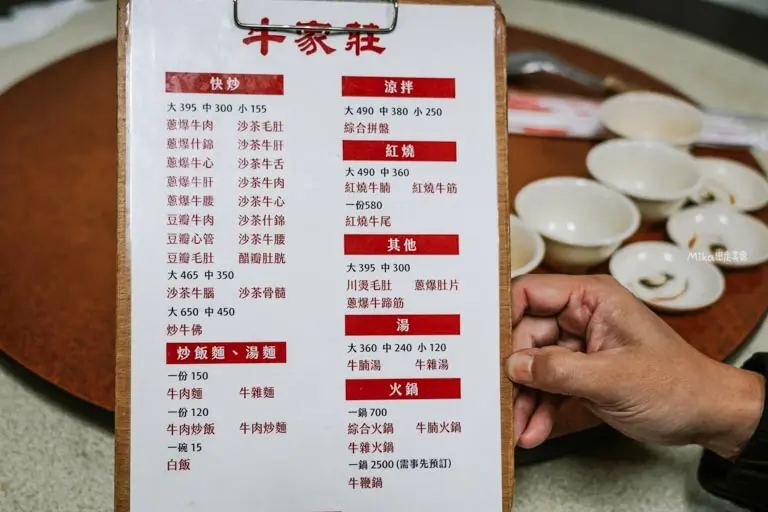 牛家莊
快炒
大 395 中 300 小 155
蔥爆牛肉 沙茶毛肚
蔥爆什錦 沙茶牛肝
蔥爆牛心 沙茶牛舌
蔥爆牛肝 沙茶牛肉
蔥爆牛腰 沙茶牛心
豆瓣牛肉 沙茶什錦
豆瓣心管 沙茶牛腰
豆瓣毛肚 醋瓣肚胘
大 465 中 350
沙茶牛腦 沙茶骨髓
大 650 中 450
炒牛佛
炒飯麵、湯麵
一份 150
牛肉麵 牛雜麵
一份 120
牛肉炒飯 牛肉炒麵
一碗 15
白飯
涼拌
大 490 中 380 小 250
綜合拼盤
紅燒
大 490 中 360
紅燒牛腩 紅燒牛筋
一份580
紅燒牛尾
其他
大 395 中 300
川燙毛肚 蔥爆肚片
蔥爆牛蹄筋
湯
大 360 中 240 小 120
牛腩湯 牛雜湯
火鍋
一鍋 700
綜合火鍋 牛腩火鍋
牛雜火鍋
一鍋 2500 (需事先預訂)
牛鞭鍋
Mika出走美食